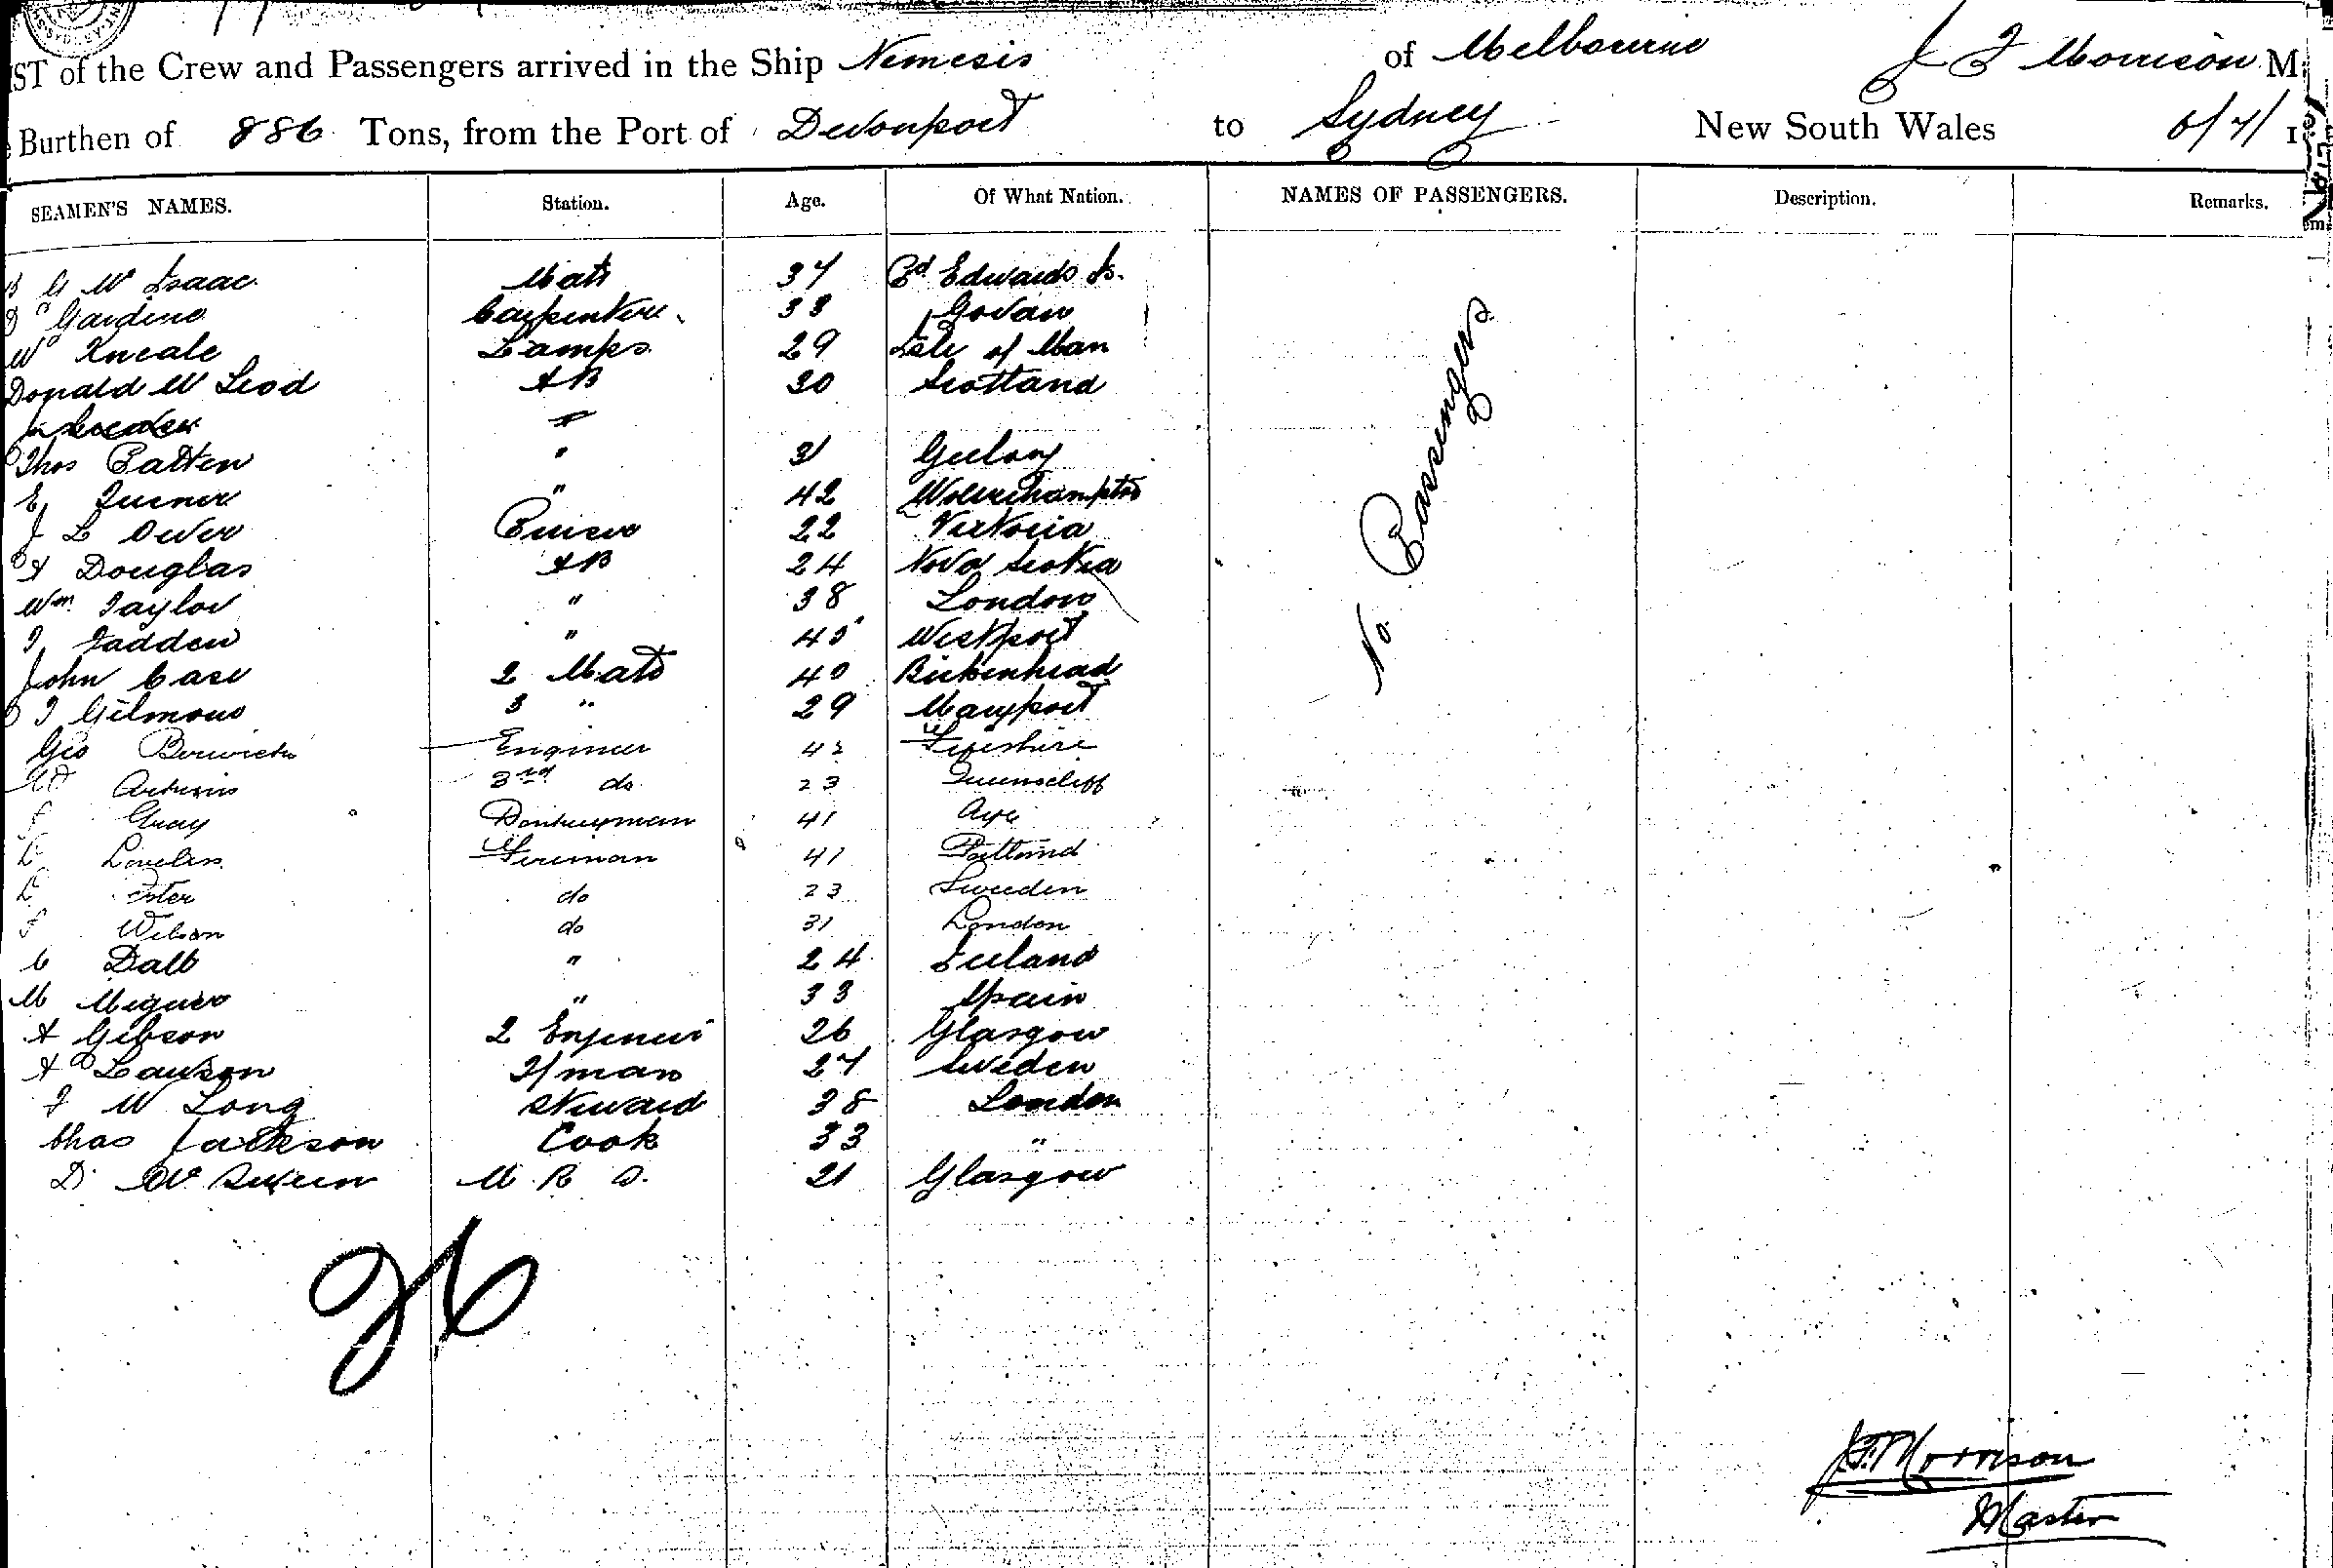 ST of the Crew and Passengers arrived in the Ship Nemesis of Melbourne J F Morrison M
Burthen of 886 Tons, from the Port of Devonport to Sydney New South Wales
SEAMEN'S NAMES. Station. Age. Of What Nation. NAMES OF PASSENGERS. Description. Remarks.
G W Isaac Mate 37 Pd Edwards Is.
Gardine Carpenter 33 Govan
W Kneale Lamps 29 Isle of Man
Donald Mc Leod AB 30 Scotland
Thos Patten " 31 Geelong
E Turner " 42 Wolverhampton
J L Over 22 Victoria
A Douglas AB 24 Nova Scotia
Wm Taylor " 38 London
Fadden " 45 Westport
John Case 2 Mate 40 Birkenhead
Gilmour 3 " 29 Maryport
Geo Berwick Engineer 42 Fifeshire
3rd do 23 Queenscliff
J Gray Donkeyman 41 Ayr
Loveless Fireman 41 Portland
Ester do 23 Sweden
J Wilson do 31 London
C Dalt " 24 Ireland
M " 33 Spain
A Gibson 2 Engineer 26 Glasgow
A Lawson F/man 27 Sweden
W Long Steward 38 London
Chas Jackson Cook 33 "
D Mc Queen M R S. 21 Glasgow
No Passengers
26
J.F. Morrison
Master